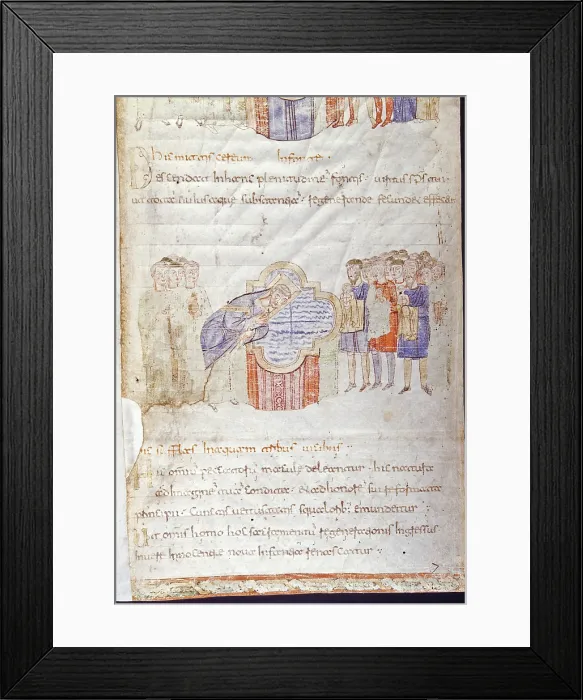 Hic mutas cereum in fonte
Descendat in hanc plenitudine fontis · virtus sps
huius aque substantia · regenerande fecundet effectu
Hic sufflas in aquam tribus vicibus
Hic omniu peccatoru macule deleantur · hic natura
ad imagine tua condita · et ad honore sui reformata
principii · cunctis vetustatis squalorib emundetur
Ut omnis homo hoc sacramentu regenerationis ingressus
in vere innocentie nova infantia renascatur